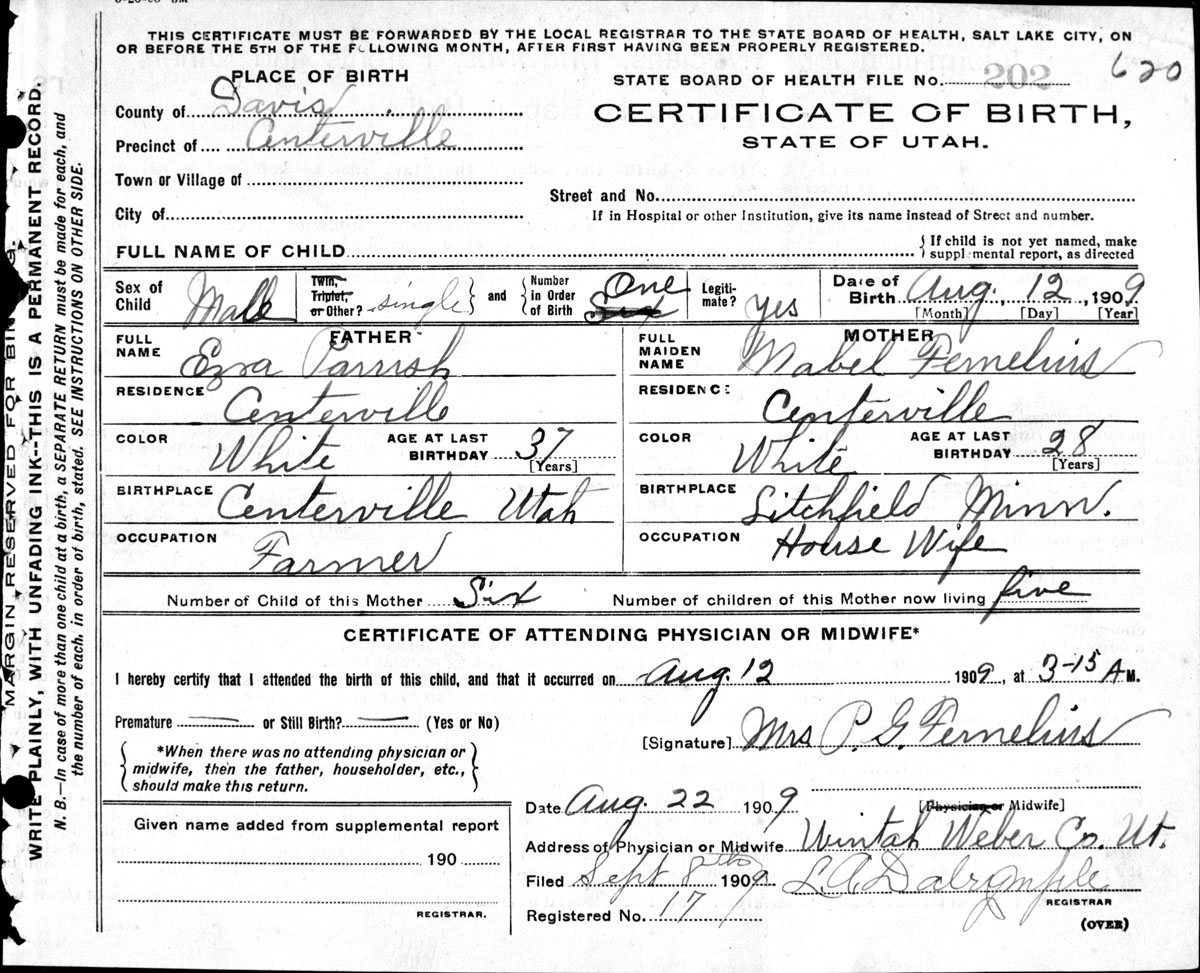 THIS CERTIFICATE MUST BE FORWARDED BY THE LOCAL REGISTRAR TO THE STATE BOARD OF HEALTH, SALT LAKE CITY, ON
OR BEFORE THE 5TH OF THE FOLLOWING MONTH, AFTER FIRST HAVING BEEN PROPERLY REGISTERED.
PLACE OF BIRTH
STATE BOARD OF HEALTH FILE No. 202 620
County of Davis
CERTIFICATE OF BIRTH,
Precinct of Centerville
STATE OF UTAH.
Town or Village of
Street and No.
City of
If in Hospital or other Institution, give its name instead of Street and number.
FULL NAME OF CHILD
If child is not yet named, make
supplemental report, as directed
Sex of Child Male
Twin, Triplet, or Other? single
and
Number in Order of Birth Six One
Legiti-mate? Yes
Date of Birth Aug. 12, 1909
[Month] [Day] [Year]
FATHER
FULL NAME Ezra Parrish
MOTHER
FULL MAIDEN NAME Mabel Fernelius
RESIDENCE Centerville
RESIDENCE Centerville
COLOR White
AGE AT LAST BIRTHDAY 37 [Years]
COLOR White
AGE AT LAST BIRTHDAY 28 [Years]
BIRTHPLACE Centerville Utah
BIRTHPLACE Litchfield Minn.
OCCUPATION Farmer
OCCUPATION House Wife
Number of Child of this Mother Six
Number of children of this Mother now living five
CERTIFICATE OF ATTENDING PHYSICIAN OR MIDWIFE*
I hereby certify that I attended the birth of this child, and that it occurred on Aug. 12 1909, at 3-15 A M.
Premature — or Still Birth? — (Yes or No)
[Signature] Mrs P. G. Fernelius
*When there was no attending physician or
midwife, then the father, householder, etc.,
should make this return.
Date Aug. 22 1909
[Physician or Midwife]
Given name added from supplemental report
Address of Physician or Midwife Uintah Weber Co. Ut.
190
Filed Sept 8th 1909 L.A. Dalrymple
REGISTRAR
Registered No. 17
REGISTRAR.
(OVER)
MARGIN RESERVED FOR BINDING.
WRITE PLAINLY, WITH UNFADING INK--THIS IS A PERMANENT RECORD.
N. B.—In case of more than one child at a birth, a SEPARATE RETURN must be made for each, and
the number of each, in order of birth, stated. SEE INSTRUCTIONS ON OTHER SIDE.